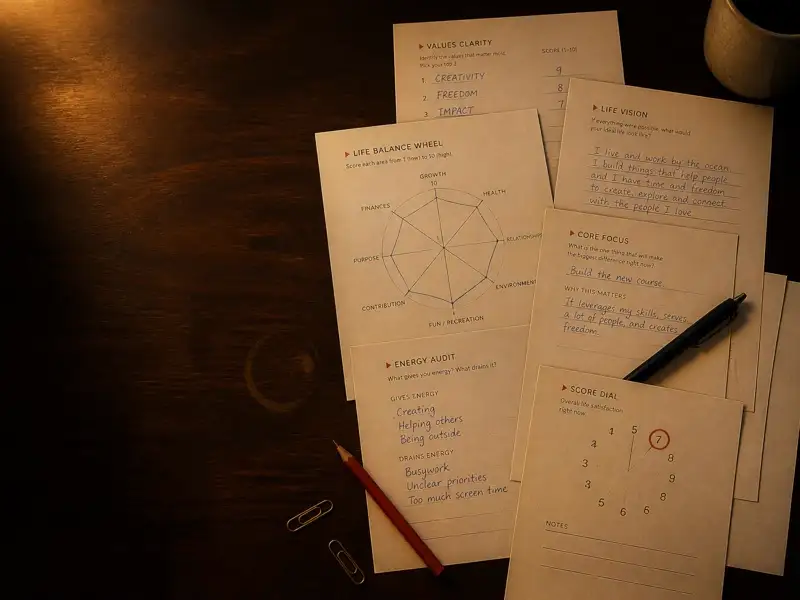 ▶ VALUES CLARITY
Identify the values that matter most.
Pick your top 3.
SCORE (1-10)
1. CREATIVITY 9
2. FREEDOM 8
3. IMPACT 7
▶ LIFE VISION
If everything were possible, what would
your ideal life look like?
I live and work by the ocean
I build things that help people
and I have time and freedom
to create, explore and connect
with the people I love
▶ LIFE BALANCE WHEEL
Score each area from 1 (low) to 10 (high).
GROWTH
10
HEALTH
RELATIONSHIPS
ENVIRONMENT
FUN / RECREATION
CONTRIBUTION
PURPOSE
FINANCES
▶ CORE FOCUS
What is the one thing that will make
the biggest difference right now?
Build the new course
WHY THIS MATTERS
It leverages my skills, serves
a lot of people, and creates
freedom.
▶ ENERGY AUDIT
What gives you energy? What drains it?
GIVES ENERGY
Creating
Helping others
Being outside
DRAINS ENERGY
Busywork
Unclear priorities
Too much screen time
▶ SCORE DIAL
Overall life satisfaction
right now
5
7
8
9
8
6
6
5
3
3
NOTES